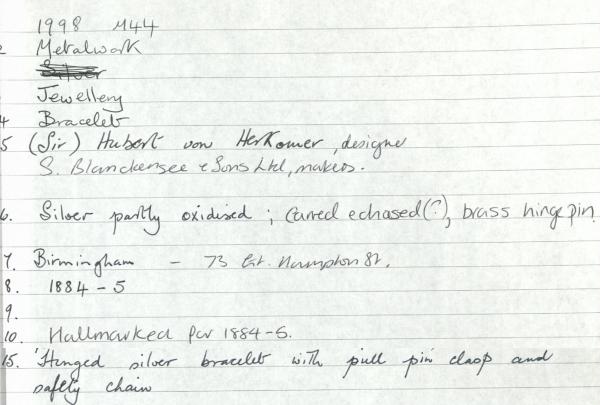 1998 M44
2 Metalwork
Silver
Jewellery
4 Bracelet
5 (Sir) Hubert von Herkomer, designer
S. Blanckensee & Sons Ltd, makers.
6. Silver partly oxidised; carved & chased(?), brass hinge pin.
7. Birmingham - 73 Gt. Hampton St.
8. 1884-5
9.
10. Hallmarked for 1884-5.
15. 'Hinged silver bracelet with pull pin clasp and
safety chain